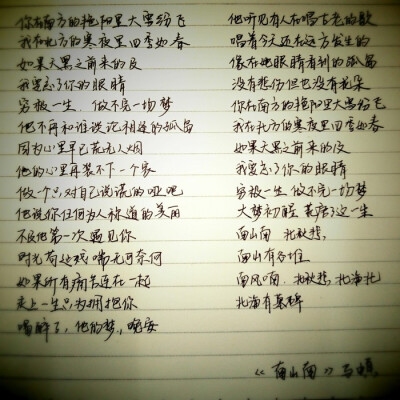 你在南方的艳阳里大雪纷飞
我在北方的寒夜里四季如春
如果天黑之前来的及
我要忘了你的眼睛
穷极一生，做不完一场梦
他不再和谁谈论相逢的孤岛
因为心里早已荒无人烟
他的心里再装不下一个家
做一个只对自己说谎的哑吧
他说你任何为人称道的美丽
不及他第一次遇见你
时光苟延残喘无可奈何
如果所有痛苦连在一起
走上一生只为拥抱你
喝醉了，他的梦，晚安
他听见有人在唱古老的歌
唱着今天还在远方发生的
像在她眼睛看到的孤岛
没有悲伤但也没有花朵
你在南方的艳阳里大雪纷飞
我在北方的寒夜里四季如春
如果天黑之前来的及
我要忘了你的眼睛
穷极一生做不完一场梦
大梦初醒 荒唐了这一生
南山南，北秋悲，
南山有谷堆
南风喃，北秋悲，北海北
北海有墓碑
《南山南》马頔